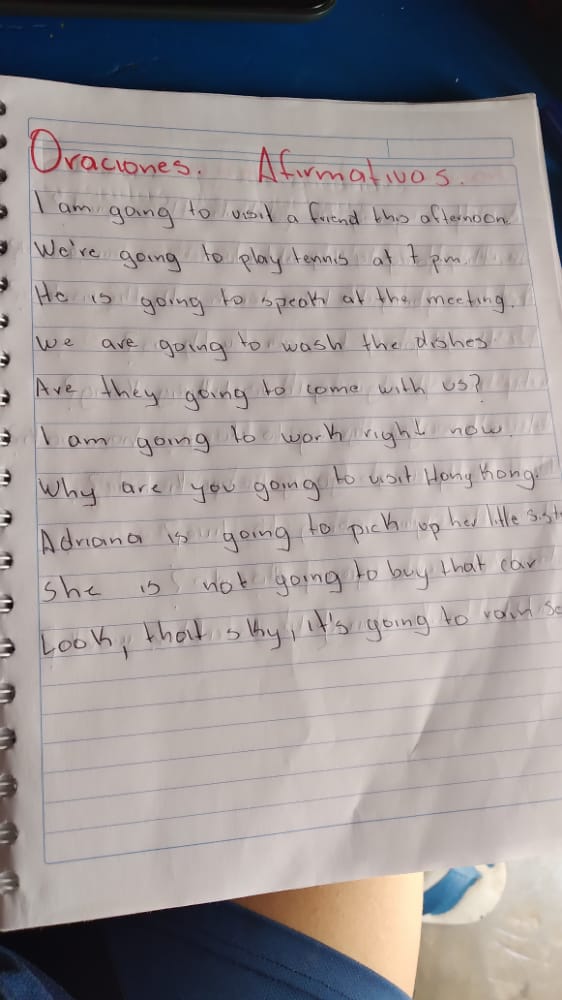 Oraciones. Afirmativos.
I am going to visit a friend this afternoon.
We're going to play tennis at 7 pm.
He is going to speak at the meeting.
We are going to wash the dishes
Are they going to come with us?
I am going to work right now.
Why are you going to visit Hong Kong.
Adriana is going to pick up her little sist
She is not going to buy that car
Look, that sky, it's going to rain so